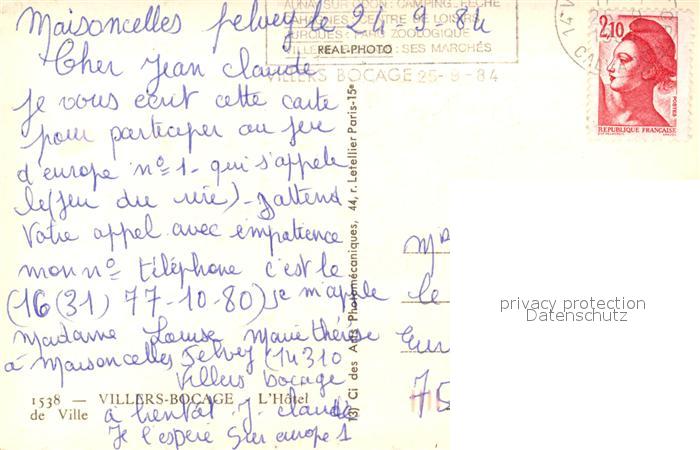 Maisoncelles pelvey le 24-9-84
CAMPING PECHE
CENTRE DE LOISIRS
PARC ZOOLOGIQUE
SES MARCHÉS
REAL-PHOTO
VILLERS BOCAGE 25-9-84
2,10
POSTES
REPUBLIQUE FRANÇAISE
Cher Jean claude
je vous ecrit cette carte
pour participer au jeu
d'europe n° 1 - qui s'appele
le (jeu du rire) - Jattend
votre appel avec empatience
mon n° téléphone c'est le
(16 (31) 77-10-80) je m'apele
Madame Louise Marie thérèse
à Maisoncelles Pelvey (14310
Villers bocage
à bientot J. claude
Je l'espere sur europe 1
1538 — VILLERS-BOCAGE - L'Hôtel
de Ville
13) Ci des Arts Photomécaniques, 44, r. Letellier Paris-15e
le
Eur
75
privacy protection
Datenschutz